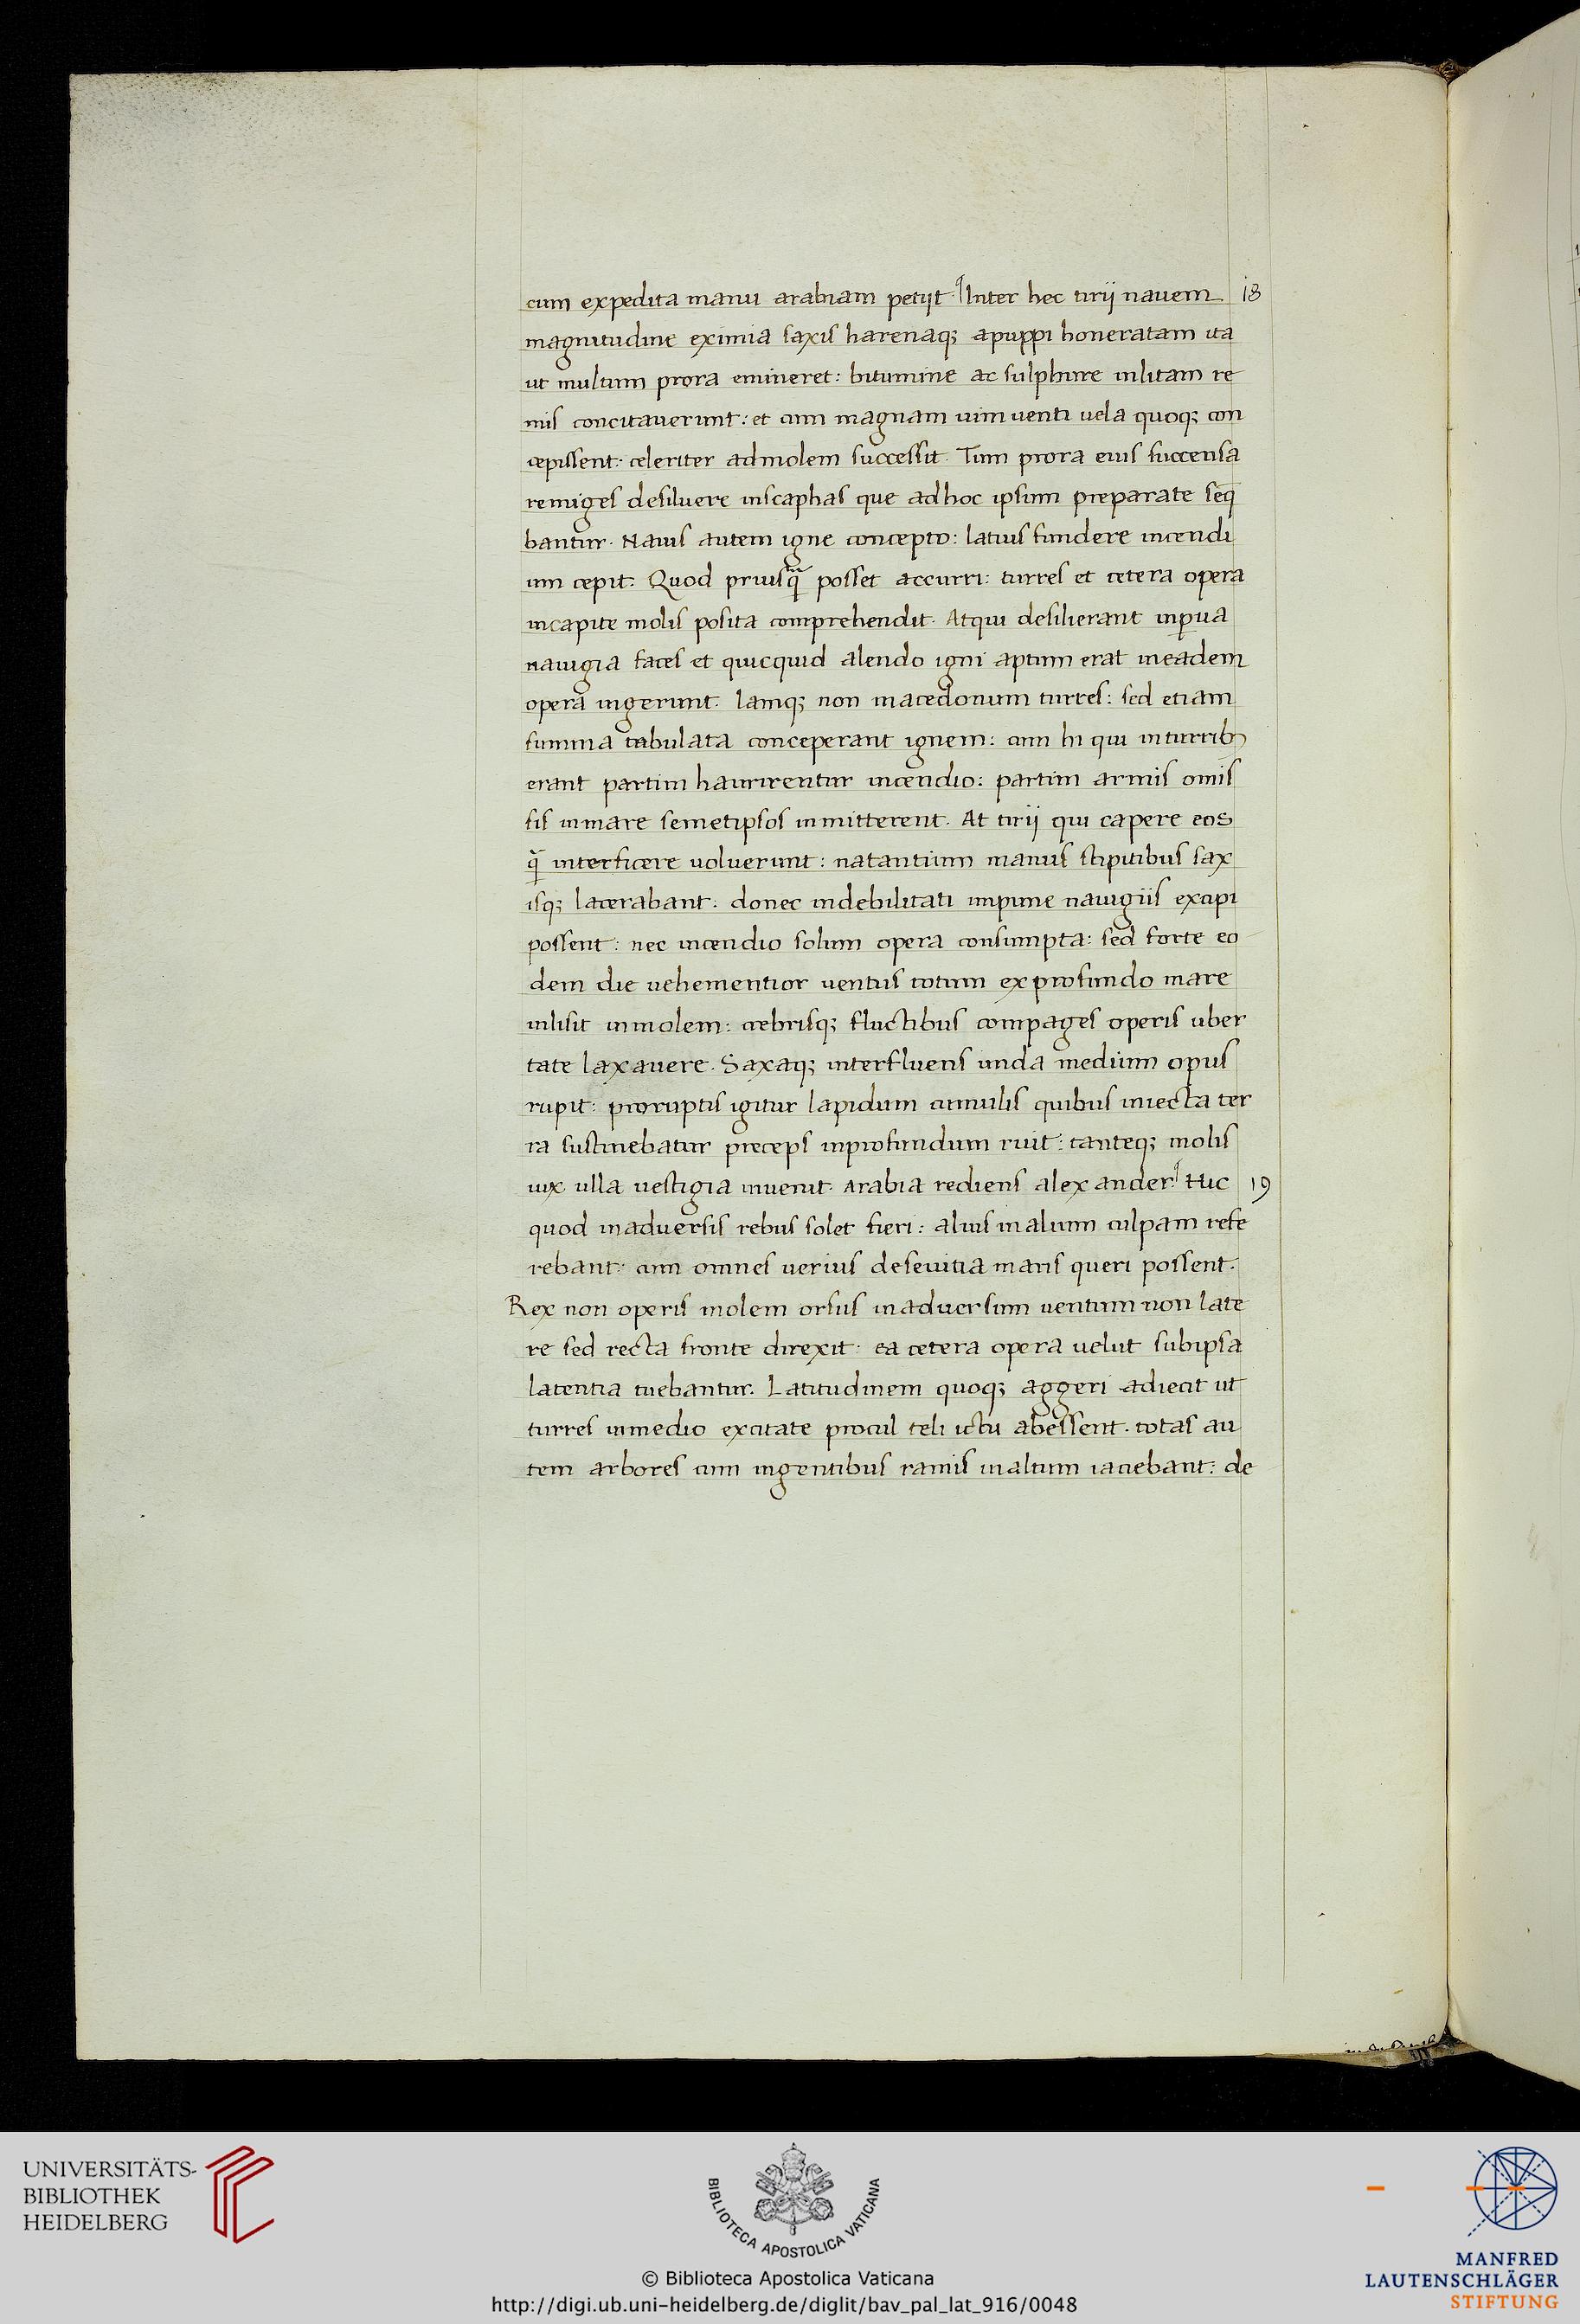 cum expedita manu arabiam petijt. Inter hec tirij nauem 18
magnitudine eximia saxis harenaq; apuppi honeratam ita
ut multum prora emineret: bitumine ac sulphure inlitam re
mis concitauerunt: et cum magnam uim uenti uela quoq; con
cepissent: celeriter admolem successit. Tum prora eius succensa
remiges desiluere inscaphas que adhoc ipsum preparate seq̄
bantur. Nauis autem igne concepto: latius fundere incendi
um cepit. Quod priusq̄m posset accurri: turres et cetera opera
incapite molis posita comprehendit. Atqui desilierant inꝑua
nauigia faces et quicquid alendo igni aptum erat ineadem
opera ingerunt. Iamq; non macedonum turres: sed etiam
summa tabulata conceperant ignem: cum hi qui inturrib;
erant partim haurirentur incendio: partim armis omis
sis inmare semetipsos inmitterent. At tirij qui capere eos
q̄ interficere uoluerunt: natantium manus stipitibus sax
isq; lacerabant: donec indebilitati impune nauigiis excipi
possent: nec incendio solum opera consumpta: sed forte eo
dem die uehementior uentus totum exprofundo mare
inlisit inmolem: crebrisq; fluctibus compages operis uber
tate laxauere. Saxaq; interfluens unda medium opus
rupit: proruptis igitur lapidum cumulis quibus iniecta ter
ra sustinebatur preceps inprofundum ruit: tanteq; molis
uix ulla uestigia inuenit. Arabia rediens alexander. Huc 19
quod inaduersis rebus solet fieri: alius inalium culpam refe
rebant: cum omnes uerius deseuitia maris queri possent.
Rex non operis molem orsus inaduersum uentum non late
re sed recta fronte direxit: ea cetera opera uelut subipsa
latentia tuebantur. Latitudinem quoq; aggeri adiecit ut
turres inmedio excitate procul teli ictu abessent. totas au
tem arbores cum ingentibus ramis inaltum iaciebant: de
UNIVERSITÄTS-
BIBLIOTHEK
HEIDELBERG
BIBLIOTECA APOSTOLICA VATICANA
© Biblioteca Apostolica Vaticana
http://digi.ub.uni-heidelberg.de/diglit/bav_pal_lat_916/0048
MANFRED
LAUTENSCHLÄGER
STIFTUNG